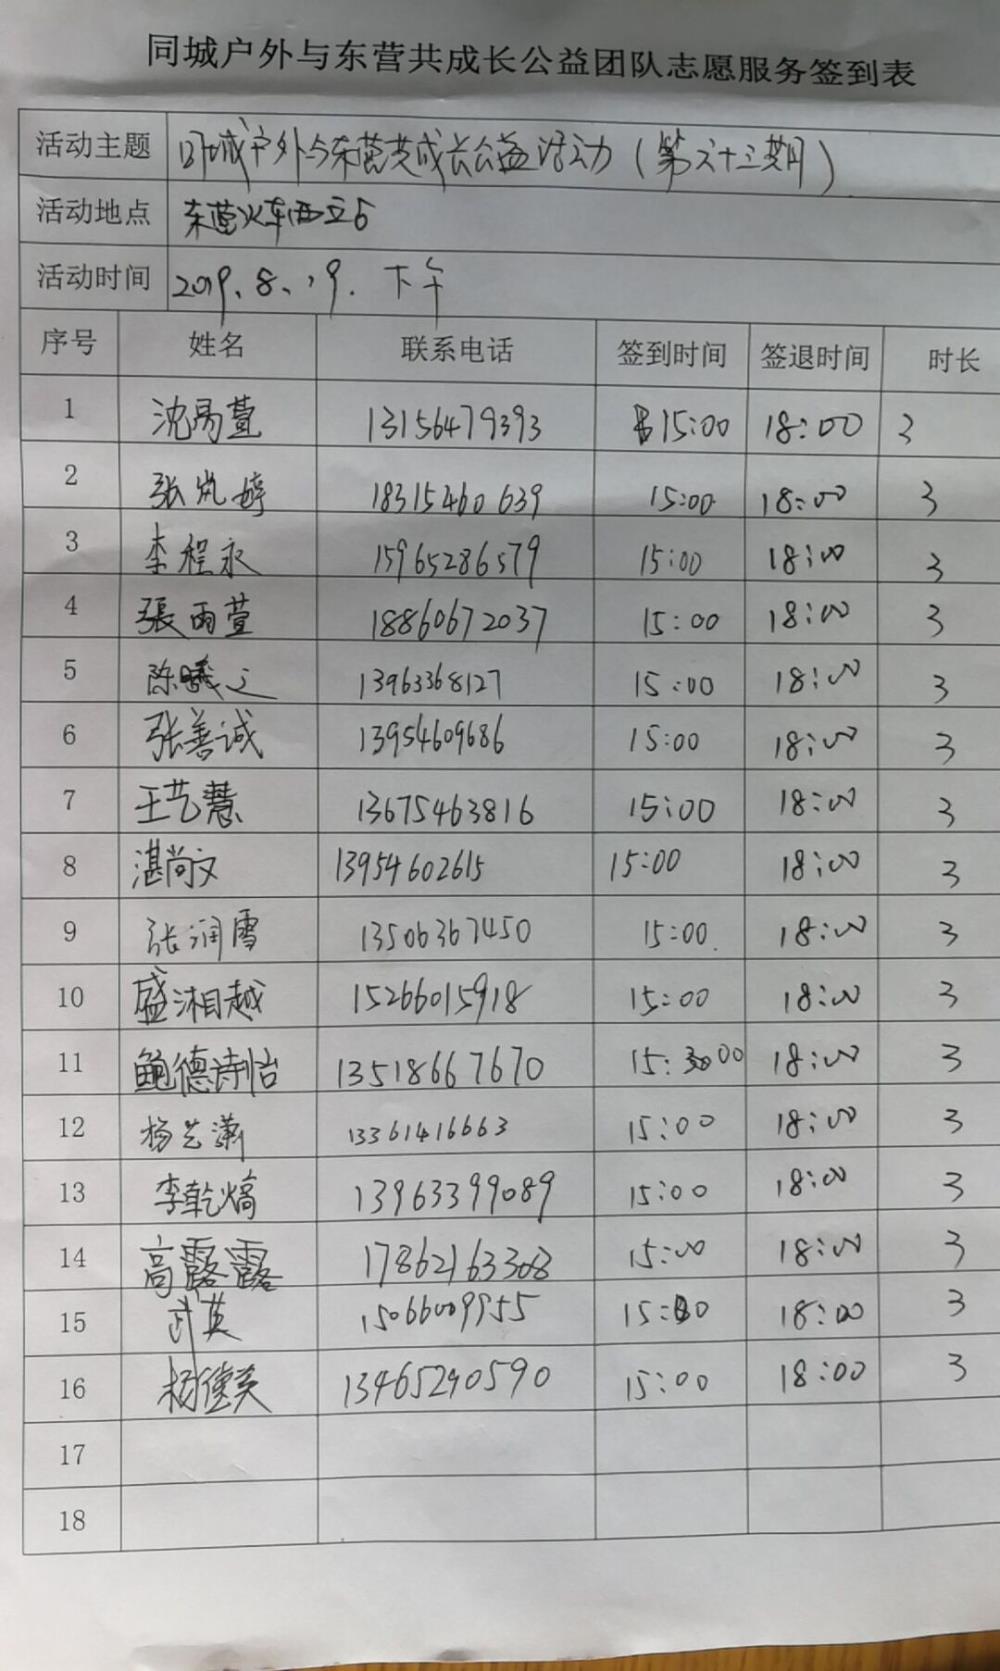 同城户外与东营共成长公益团队志愿服务签到表
活动主题 同城户外与东营共成长公益活动(第六十三期)
活动地点 东营火车西立占
活动时间 2019.8.19. 下午
序号 姓名 联系电话 签到时间 签退时间 时长
1 沈易萱 13156479393 15:00 18:00 3
2 张岚婷 18315460639 15:00 18:00 3
3 李程永 15965286579 15:00 18:00 3
4 張雨萱 18860672037 15:00 18:00 3
5 陈曦之 13963368127 15:00 18:00 3
6 张善诚 13954609686 15:00 18:00 3
7 王艺慧 13675463816 15:00 18:00 3
8 湛尚文 13954602615 15:00 18:00 3
9 张润雪 13506367450 15:00 18:00 3
10 盛湘越 15266015918 15:00 18:00 3
11 鲍德诗怡 13518667670 15:00 18:00 3
12 杨艺潇 13361416663 15:00 18:00 3
13 李乾熇 13963399089 15:00 18:00 3
14 高露露 17862163308 15:00 18:00 3
15 武英 15066009955 15:00 18:00 3
16 杨俊英 13465290590 15:00 18:00 3
17
18